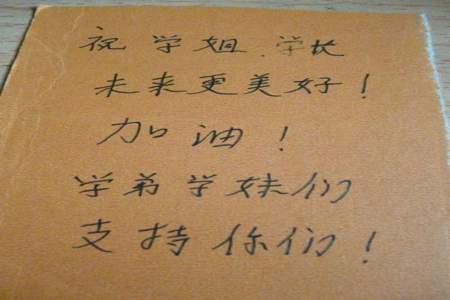 祝学姐学长
未来更美好！
加油！
学弟学妹们
支持你们！